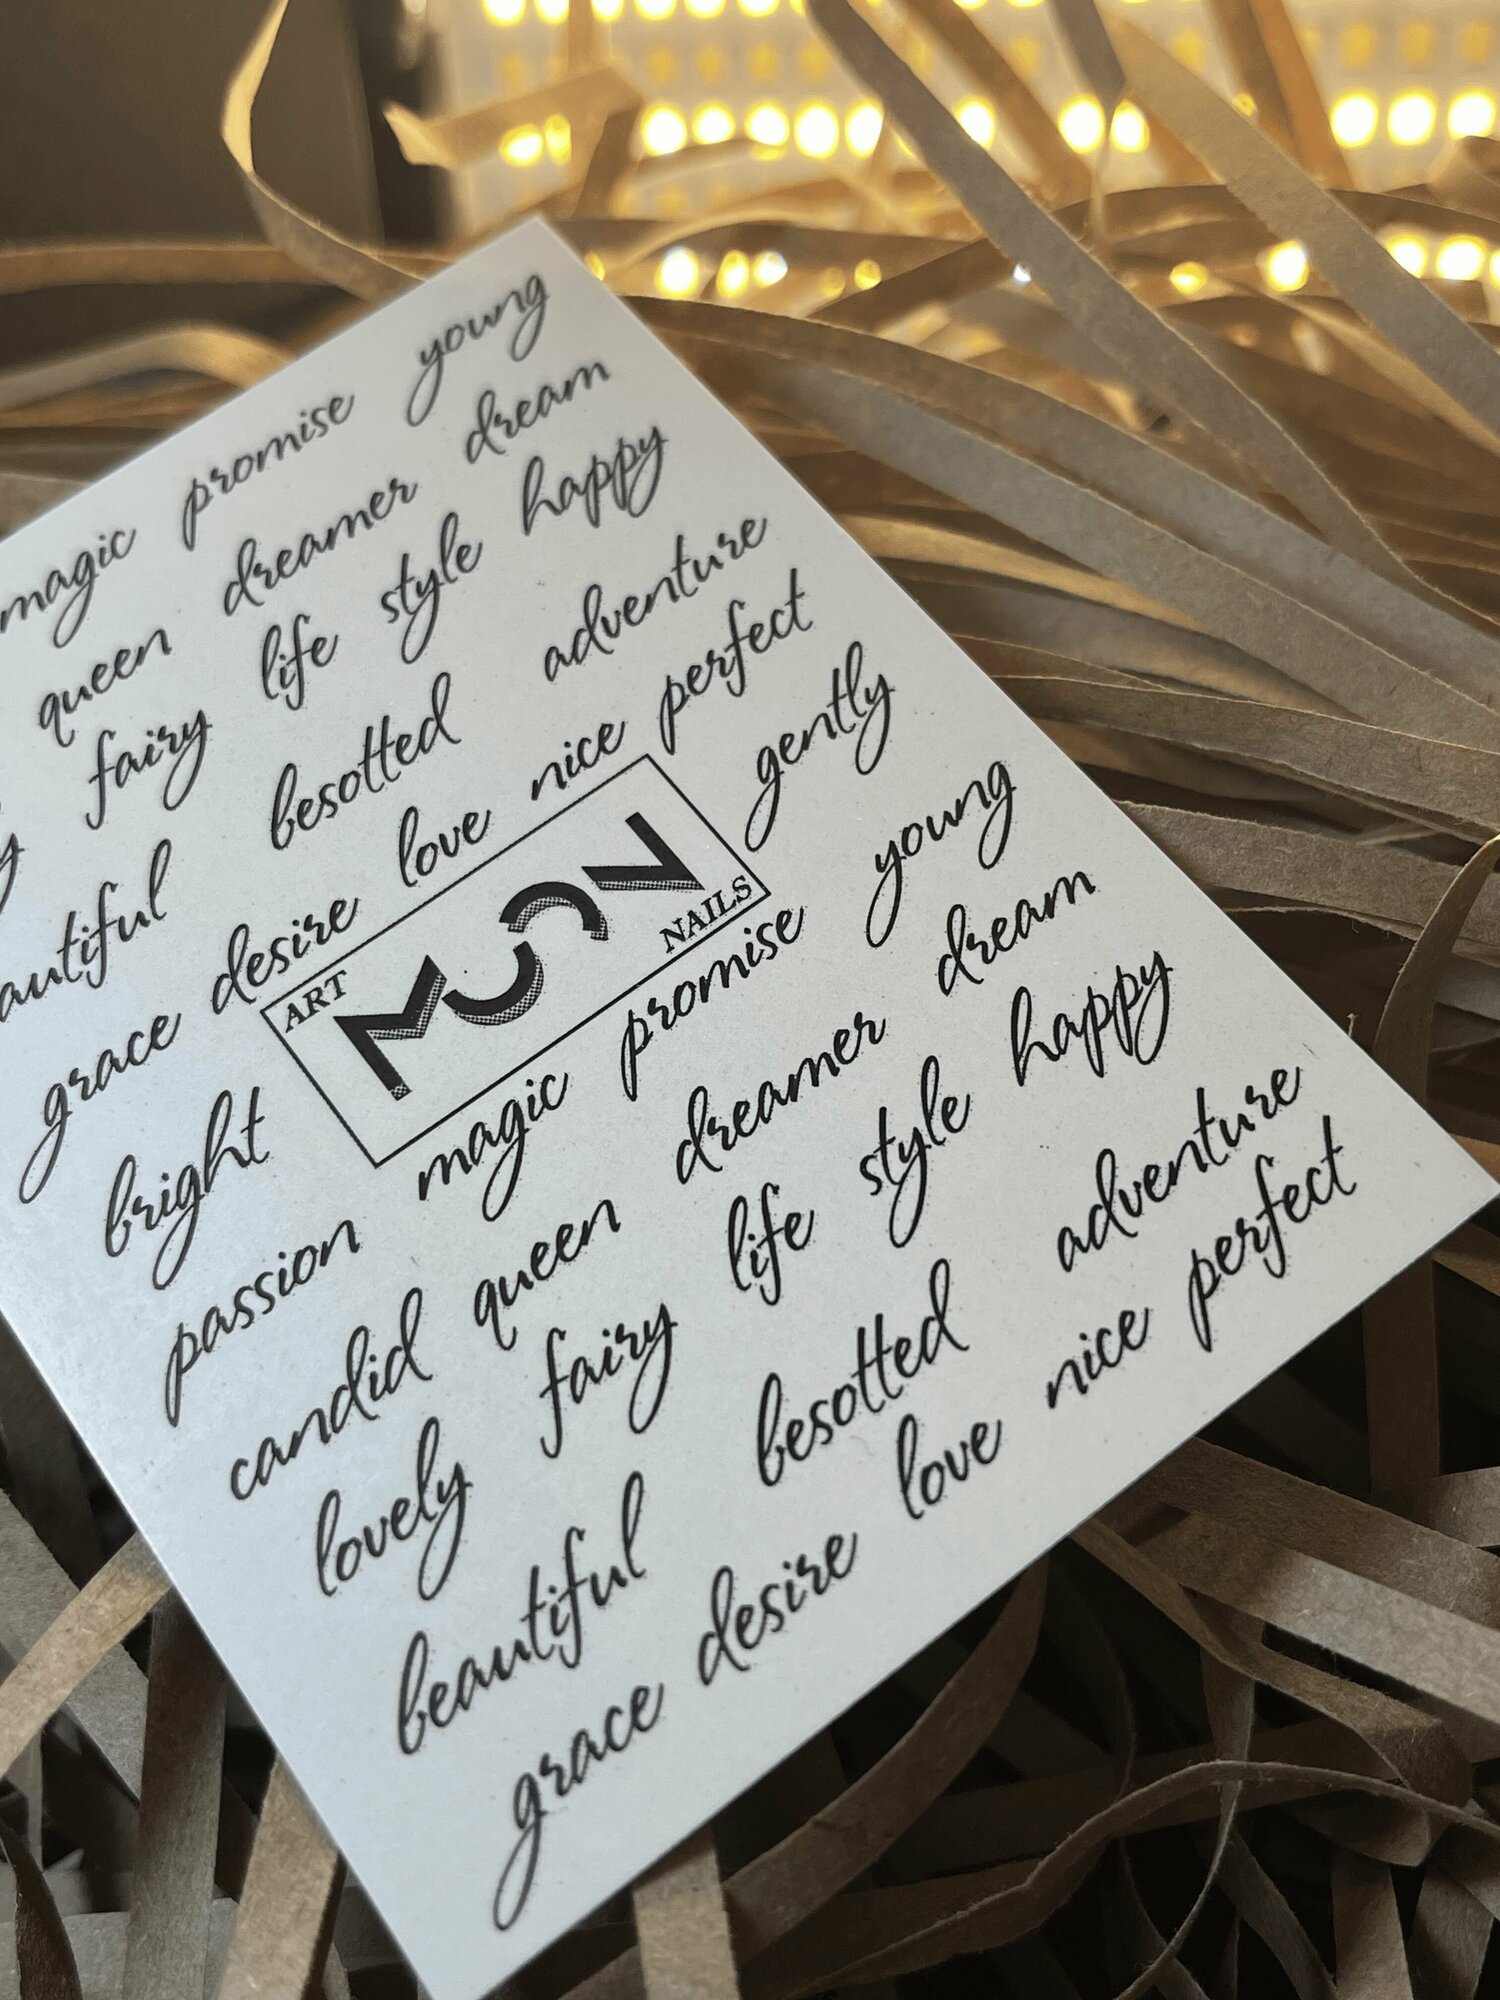 magic promise young
queen dreamer dream
fairy life style happy
besotted adventure
grace desire love nice perfect
bright gently
ART MOON NAILS
passion magic promise young
candid queen dreamer dream
lovely fairy life style happy
beautiful besotted adventure
grace desire love nice perfect